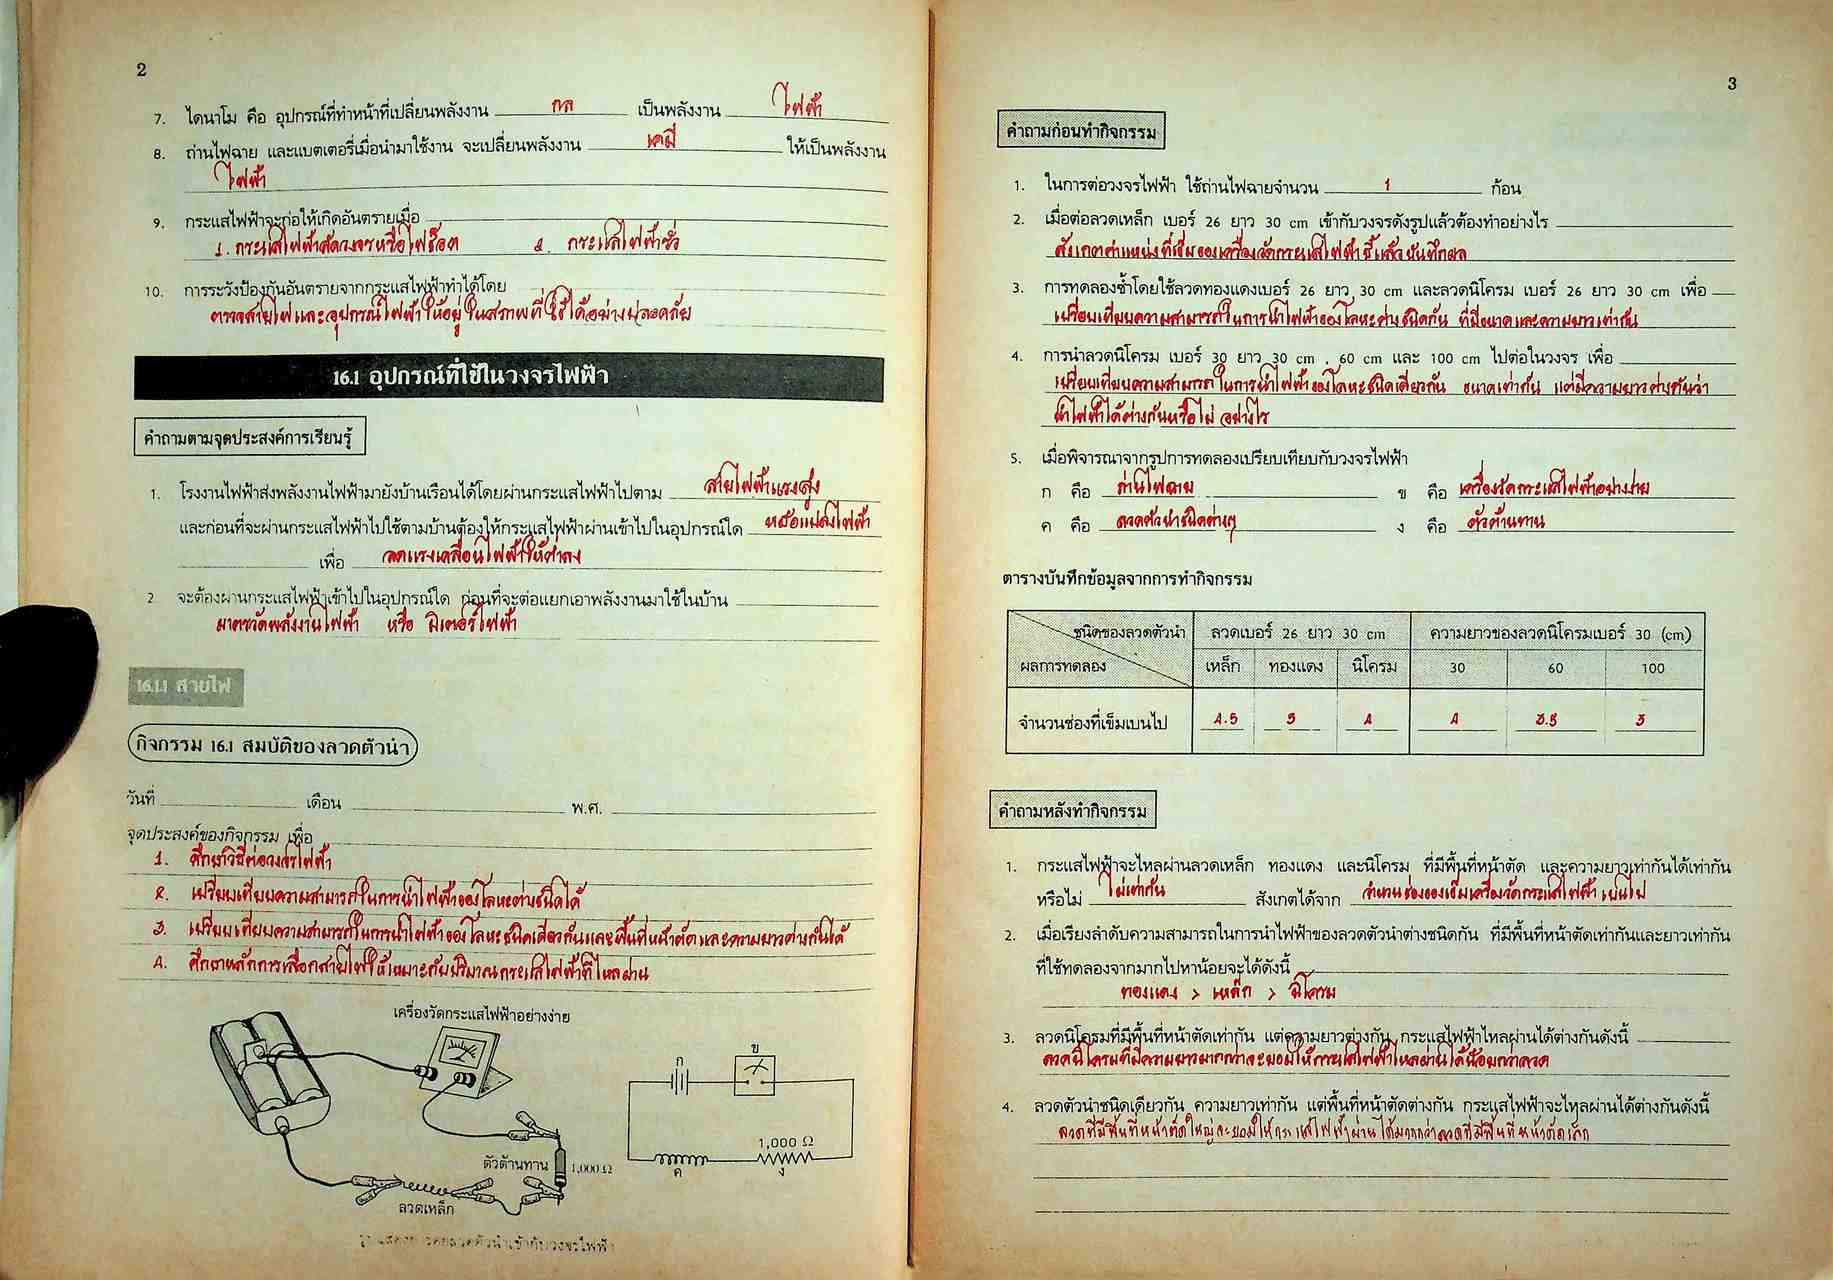 2
7. ไดนาโม คือ อุปกรณ์ที่ทำหน้าที่เปลี่ยนพลังงาน กล เป็นพลังงาน ไฟฟ้า
8. ถ่านไฟฉาย และแบตเตอรี่เมื่อนำมาใช้งาน จะเปลี่ยนพลังงาน เคมี ให้เป็นพลังงาน
ไฟฟ้า
9. กระแสไฟฟ้าจะก่อให้เกิดอันตรายเมื่อ
1. กระแสไฟฟ้าลัดวงจรหรือไฟช็อต 2. กระแสไฟฟ้ารั่ว
10. การระวังป้องกันอันตรายจากกระแสไฟฟ้าทำได้โดย
ตรวจสายไฟและอุปกรณ์ไฟฟ้าให้อยู่ในสภาพที่ใช้ได้อย่างปลอดภัย
16.1 อุปกรณ์ที่ใช้ในวงจรไฟฟ้า
คำถามตามจุดประสงค์การเรียนรู้
1. โรงงานไฟฟ้าส่งพลังงานไฟฟ้ามายังบ้านเรือนได้โดยผ่านกระแสไฟฟ้าไปตาม สายไฟฟ้าแรงสูง
และก่อนที่จะผ่านกระแสไฟฟ้าไปใช้ตามบ้านต้องให้กระแสไฟฟ้าผ่านเข้าไปในอุปกรณ์ใด หม้อแปลงไฟฟ้า
เพื่อ ลดแรงเคลื่อนไฟฟ้าให้ต่ำลง
2. จะต้องผ่านกระแสไฟฟ้าเข้าไปในอุปกรณ์ใด ก่อนที่จะต่อแยกเอาพลังงานมาใช้ในบ้าน
มาตรวัดพลังงานไฟฟ้า หรือ มิเตอร์ไฟฟ้า
16.1.1 สายไฟ
กิจกรรม 16.1 สมบัติของลวดตัวนำ
วันที่ เดือน พ.ศ.
จุดประสงค์ของกิจกรรม เพื่อ
1. ศึกษาวิธีต่อวงจรไฟฟ้า
2. เปรียบเทียบความสามารถในการนำไฟฟ้าของโลหะต่างชนิดได้
3. เปรียบเทียบความสามารถในการนำไฟฟ้าของโลหะชนิดเดียวกันและพื้นที่หน้าตัดและความยาวต่างกันได้
4. ศึกษาหลักการเลือกสายไฟให้เหมาะกับปริมาณกระแสไฟฟ้าที่ไหลผ่าน
เครื่องวัดกระแสไฟฟ้าอย่างง่าย
ก ข
1,000 Ω
ค ง
ตัวต้านทาน 1,000 Ω
ลวดเหล็ก
รูปแสดงการต่อลวดตัวนำเข้ากับวงจรไฟฟ้า
3
คำถามก่อนทำกิจกรรม
1. ในการต่อวงจรไฟฟ้า ใช้ถ่านไฟฉายจำนวน 1 ก้อน
2. เมื่อต่อลวดเหล็ก เบอร์ 26 ยาว 30 cm เข้ากับวงจรดังรูปแล้วต้องทำอย่างไร
สังเกตตำแหน่งที่เข็มของเครื่องวัดกระแสไฟฟ้าชี้แล้วบันทึกผล
3. การทดลองซ้ำโดยใช้ลวดทองแดงเบอร์ 26 ยาว 30 cm และลวดนิโครม เบอร์ 26 ยาว 30 cm เพื่อ
เปรียบเทียบความสามารถในการนำไฟฟ้าของโลหะต่างชนิดกัน ที่มีขนาดและความยาวเท่ากัน
4. การนำลวดนิโครม เบอร์ 30 ยาว 30 cm , 60 cm และ 100 cm ไปต่อในวงจร เพื่อ
เปรียบเทียบความสามารถในการนำไฟฟ้าของโลหะชนิดเดียวกัน ขนาดเท่ากัน แต่มีความยาวต่างกันว่า
นำไฟฟ้าได้ต่างกันหรือไม่ อย่างไร
5. เมื่อพิจารณาจากรูปการทดลองเปรียบเทียบกับวงจรไฟฟ้า
ก คือ ถ่านไฟฉาย ข คือ เครื่องวัดกระแสไฟฟ้าอย่างง่าย
ค คือ ลวดตัวนำชนิดต่างๆ ง คือ ตัวต้านทาน
ตารางบันทึกข้อมูลจากการทำกิจกรรม
ชนิดของลวดตัวนำ ลวดเบอร์ 26 ยาว 30 cm ความยาวของลวดนิโครมเบอร์ 30 (cm)
ผลการทดลอง เหล็ก ทองแดง นิโครม 30 60 100
จำนวนช่องที่เข็มเบนไป 4.5 5 4 4 3.5 3
คำถามหลังทำกิจกรรม
1. กระแสไฟฟ้าจะไหลผ่านลวดเหล็ก ทองแดง และนิโครม ที่มีพื้นที่หน้าตัด และความยาวเท่ากันได้เท่ากัน
หรือไม่ ไม่เท่ากัน สังเกตได้จาก จำนวนช่องของเข็มเครื่องวัดกระแสไฟฟ้าเบนไป
2. เมื่อเรียงลำดับความสามารถในการนำไฟฟ้าของลวดตัวนำต่างชนิดกัน ที่มีพื้นที่หน้าตัดเท่ากันและยาวเท่ากัน
ที่ใช้ทดลองจากมากไปหาน้อยจะได้ดังนี้
ทองแดง > เหล็ก > นิโครม
3. ลวดนิโครมที่มีพื้นที่หน้าตัดเท่ากัน แต่ความยาวต่างกัน กระแสไฟฟ้าไหลผ่านได้ต่างกันดังนี้
ลวดนิโครมที่มีความยาวมากกว่าจะยอมให้กระแสไฟฟ้าไหลผ่านได้น้อยกว่าลวด
4. ลวดตัวนำชนิดเดียวกัน ความยาวเท่ากัน แต่พื้นที่หน้าตัดต่างกัน กระแสไฟฟ้าจะไหลผ่านได้ต่างกันดังนี้
ลวดที่มีพื้นที่หน้าตัดใหญ่จะยอมให้กระแสไฟฟ้าผ่านได้มากกว่าลวดที่มีพื้นที่หน้าตัดเล็ก